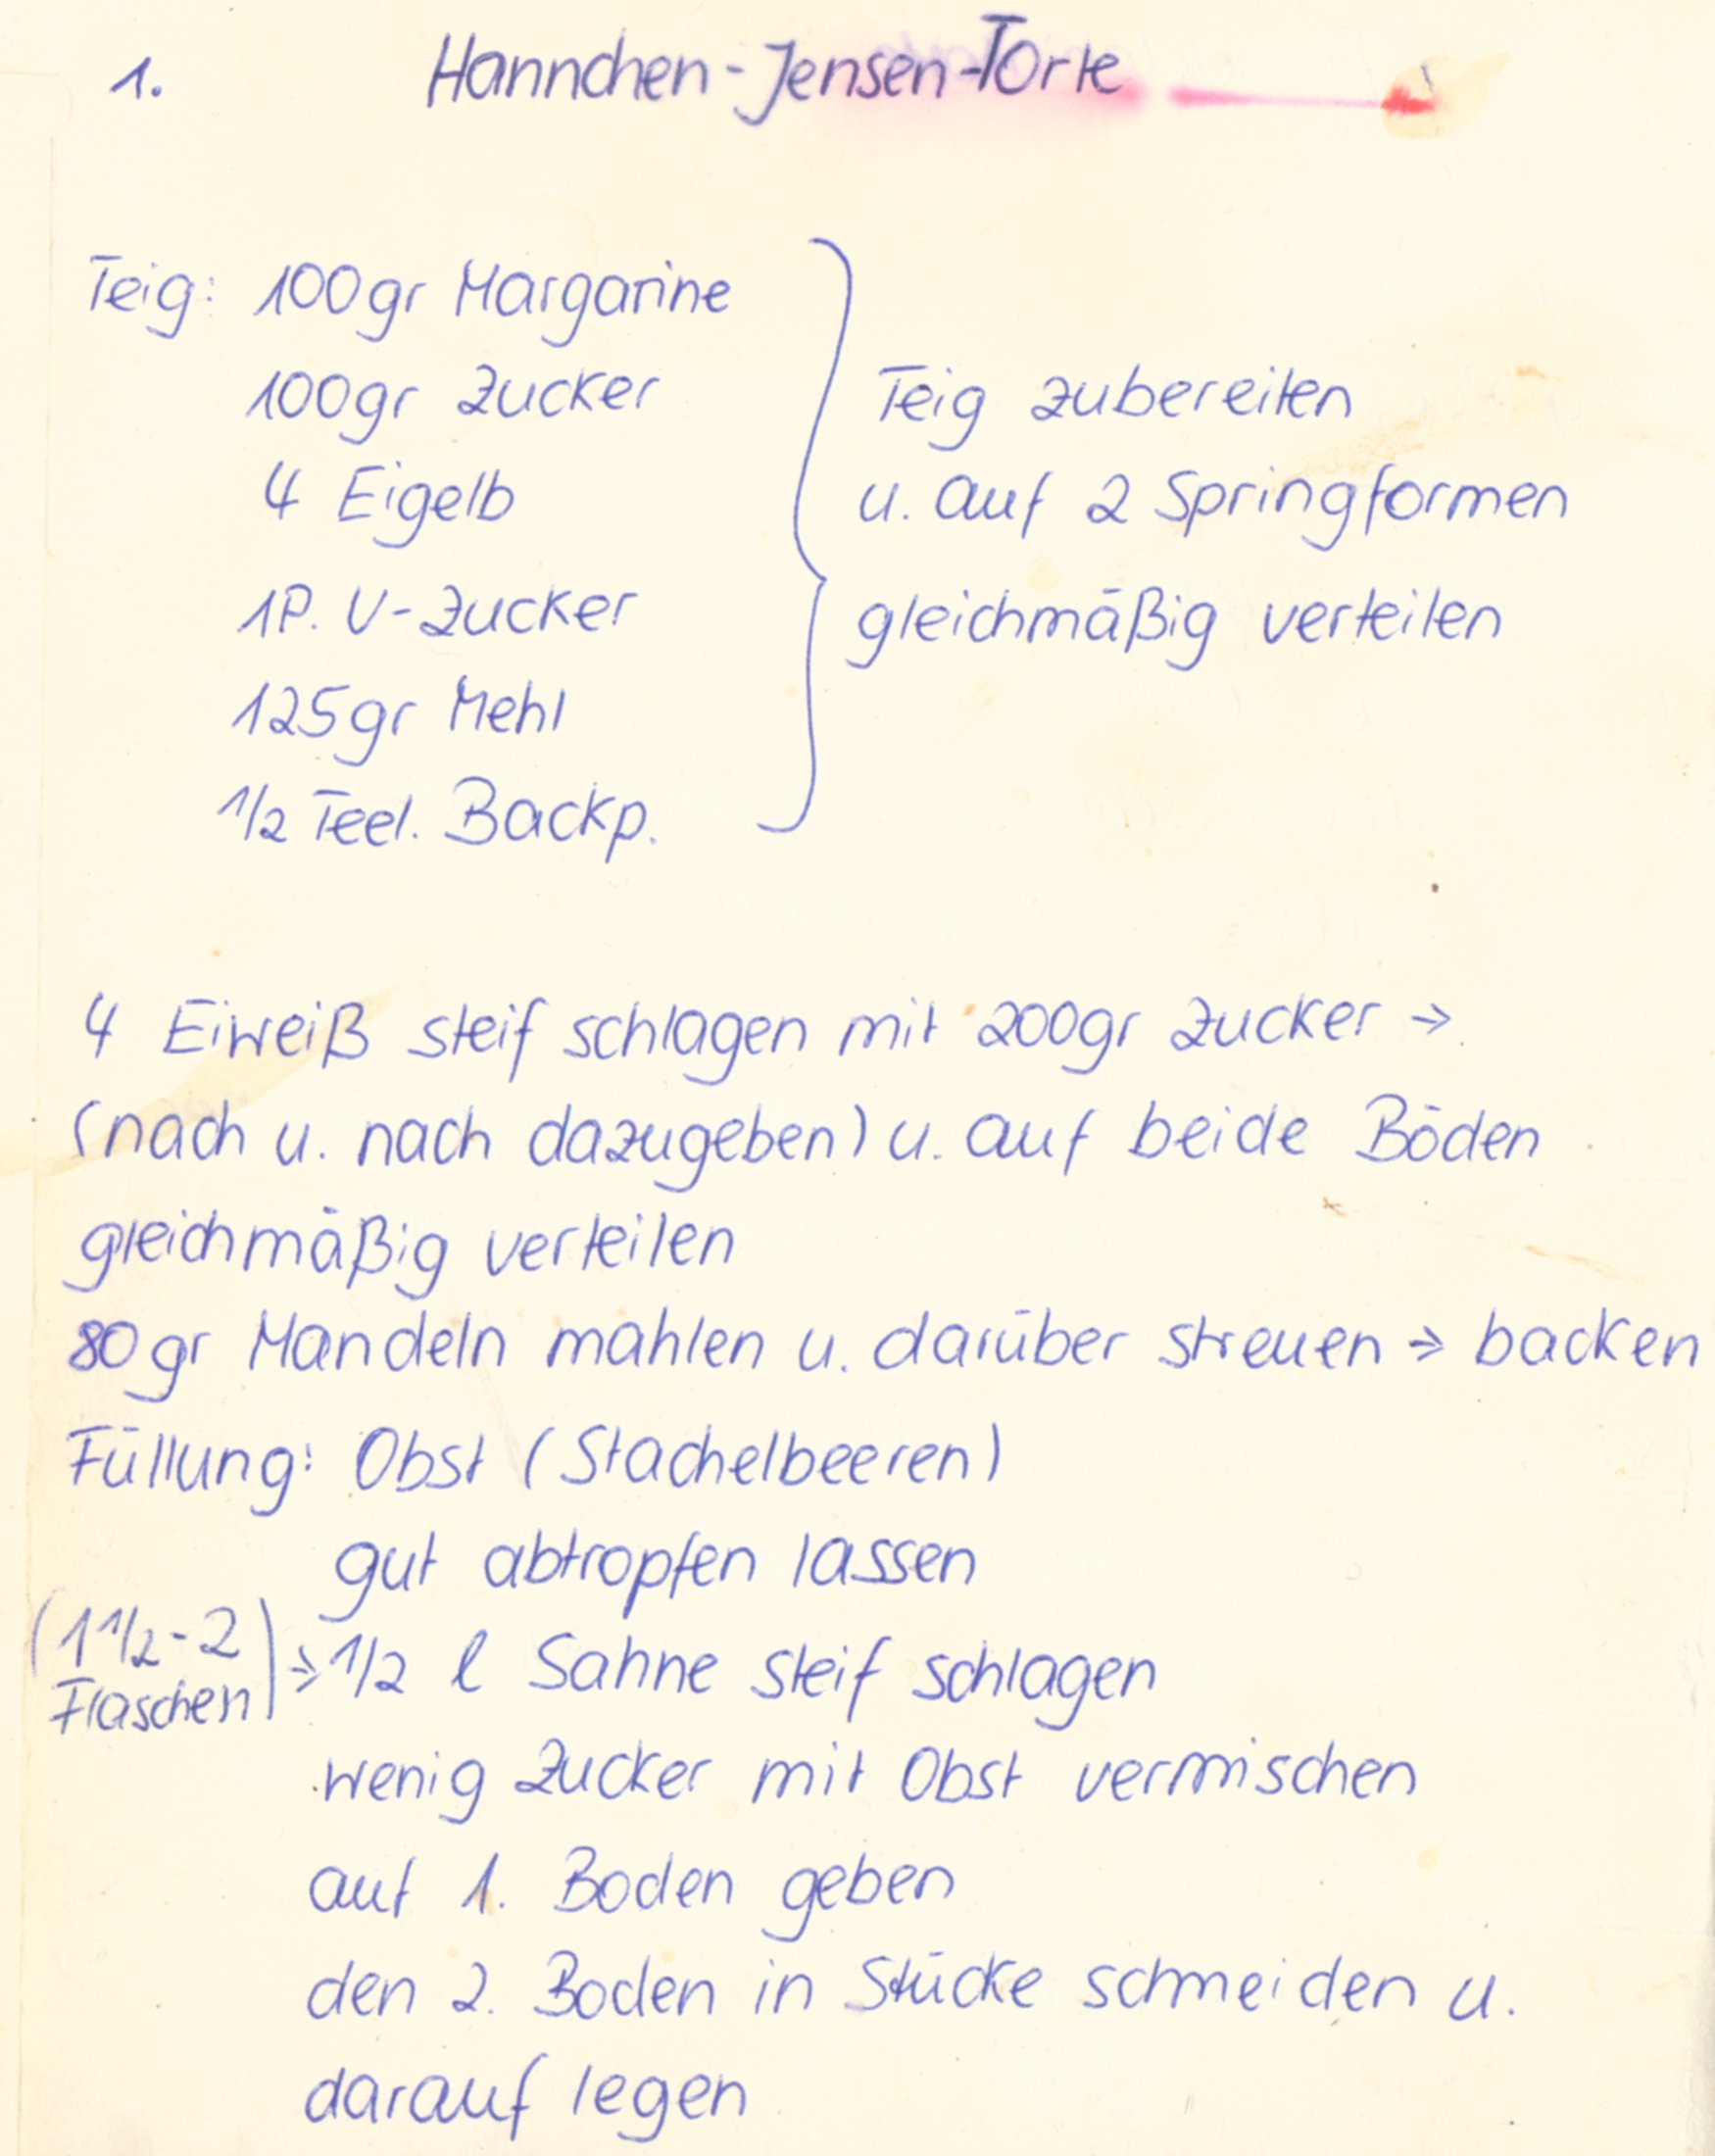 1. Hannchen-Jensen-Torte
Teig: 100gr Margarine
100gr Zucker
4 Eigelb
1P. V-Zucker
125gr Mehl
1/2 Teel. Backp.
Teig zubereiten
u. auf 2 Springformen
gleichmäßig verteilen
4 Eiweiß steif schlagen mit 200gr Zucker →
(nach u. nach dazugeben) u. auf beide Böden
gleichmäßig verteilen
80gr Mandeln mahlen u. darüber streuen → backen
Füllung: Obst (Stachelbeeren)
gut abtropfen lassen
(1 1/2 - 2
Flaschen) → 1/2 l Sahne steif schlagen
wenig Zucker mit Obst vermischen
auf 1. Boden geben
den 2. Boden in Stücke schneiden u.
darauf legen